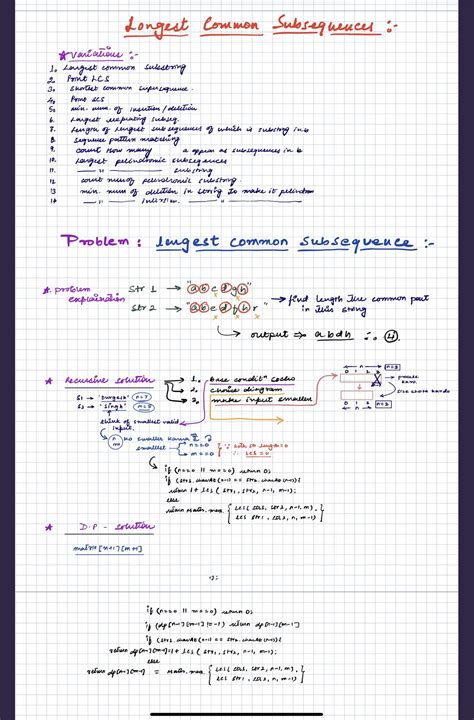 Longest Common Subsequences :-
* Variations :-
1. Longest common substring
2. Print LCS
3. Shortest common supersequence.
4. Print SCS
5. min. num. of insertion / deletion
6. Largest repeating subseq.
7. Length of longest subsequences of which is substring in b
8. Sequence pattern matching
9. count How many a appear as subsequences in b
10. Longest palindromic subsequences
11. —— " —— " —— substring
12. count num of palindromic substring.
13. min. num of deletion in string to make it palindrom
14 —— " —— insertion. —— " —— "
Problem : longest common subsequence :-
* problem explaination
str 1 → "a b c d g h"
str 2 → "a b e d f h r"
→ find length the common part in this string
→ output => a b d h ∴ 4
* Recursive solution
1. base condit" socho
2. choice diagram
3. make input smaller
S1 → "Durgesh" n=7
S2 → "Singh" m=5
think of smallest valid input.
n m
smallest
n=0
m=0
∴ LCS = 0
0 1 2
n
0 1 2
m
if (n==0 || m==0) return 0;
if (str1.charAt(n-1) == str2.charAt(m-1)){
return 1 + LCS (str1, str2, n-1, m-1);
else
return Math.max. { LCS (str1, str2, n-1, m),
LCS (str1, str2, n, m-1) }
* D.P - solution
matrix [n+1][m+1]
if (n==0 || m==0) return 0;
if (dp[n-1][m-1] != -1) return dp[n-1][m-1]
if (str1.charAt(n-1) == str2.charAt(m-1)){
return dp[n-1][m-1] = 1 + LCS (str1, str2, n-1, m-1);
else
return dp[n-1][m-1] = Math.max. { LCS (str1, str2, n-1, m),
LCS (str1, str2, n, m-1) }